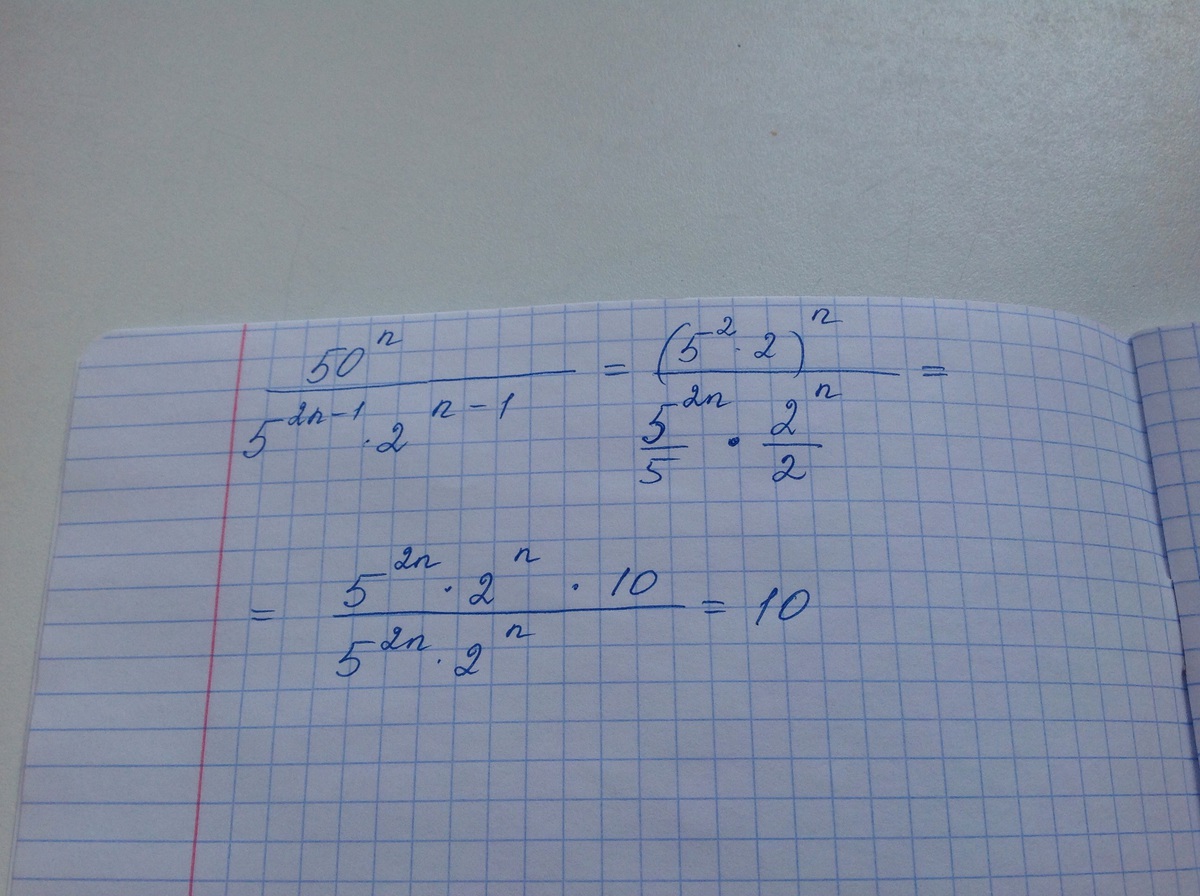 \frac{50^n}{5^{2n-1} \cdot 2^{n-1}} = \frac{(5^2 \cdot 2)^n}{\frac{5^{2n}}{5} \cdot \frac{2^n}{2}} =
= \frac{5^{2n} \cdot 2^n \cdot 10}{5^{2n} \cdot 2^n} = 10